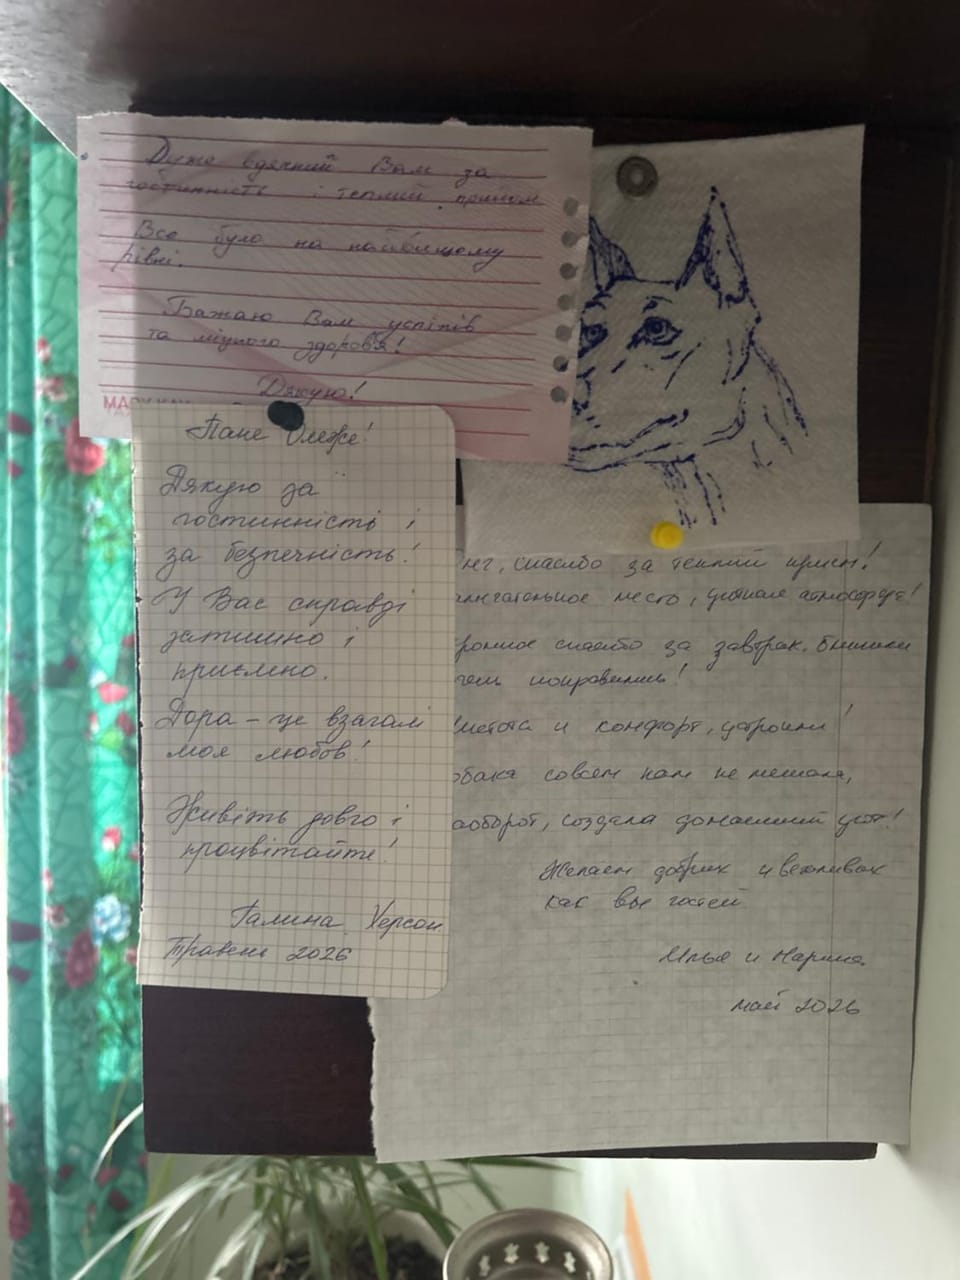 Дуже вдячний Вам за
гостинність і теплий прийом
Все було на найвищому
рівні.
Бажаю Вам успіхів
та міцного здоров'я!
Дякую!
MARY KAY
Пане Олеже!
Дякую за
гостинність і
за безпечність!
У Вас справді
затишно і
приємно.
Дора – це взагалі
моя любов!
Живіть довго і
процвітайте!
Галина Херсон
Травень 2026
ег, спасибо за теплий прием!
место, уютная атмосфера!
ромное спасибо за завтрак. блинчики
понравились!
истота и комфорт, устроили!
обака совсем нам не мешала,
аоборот, создала домашний уют!
Желаем добрых и вежливых
как вы гостей
Илья и Марина.
май 2026